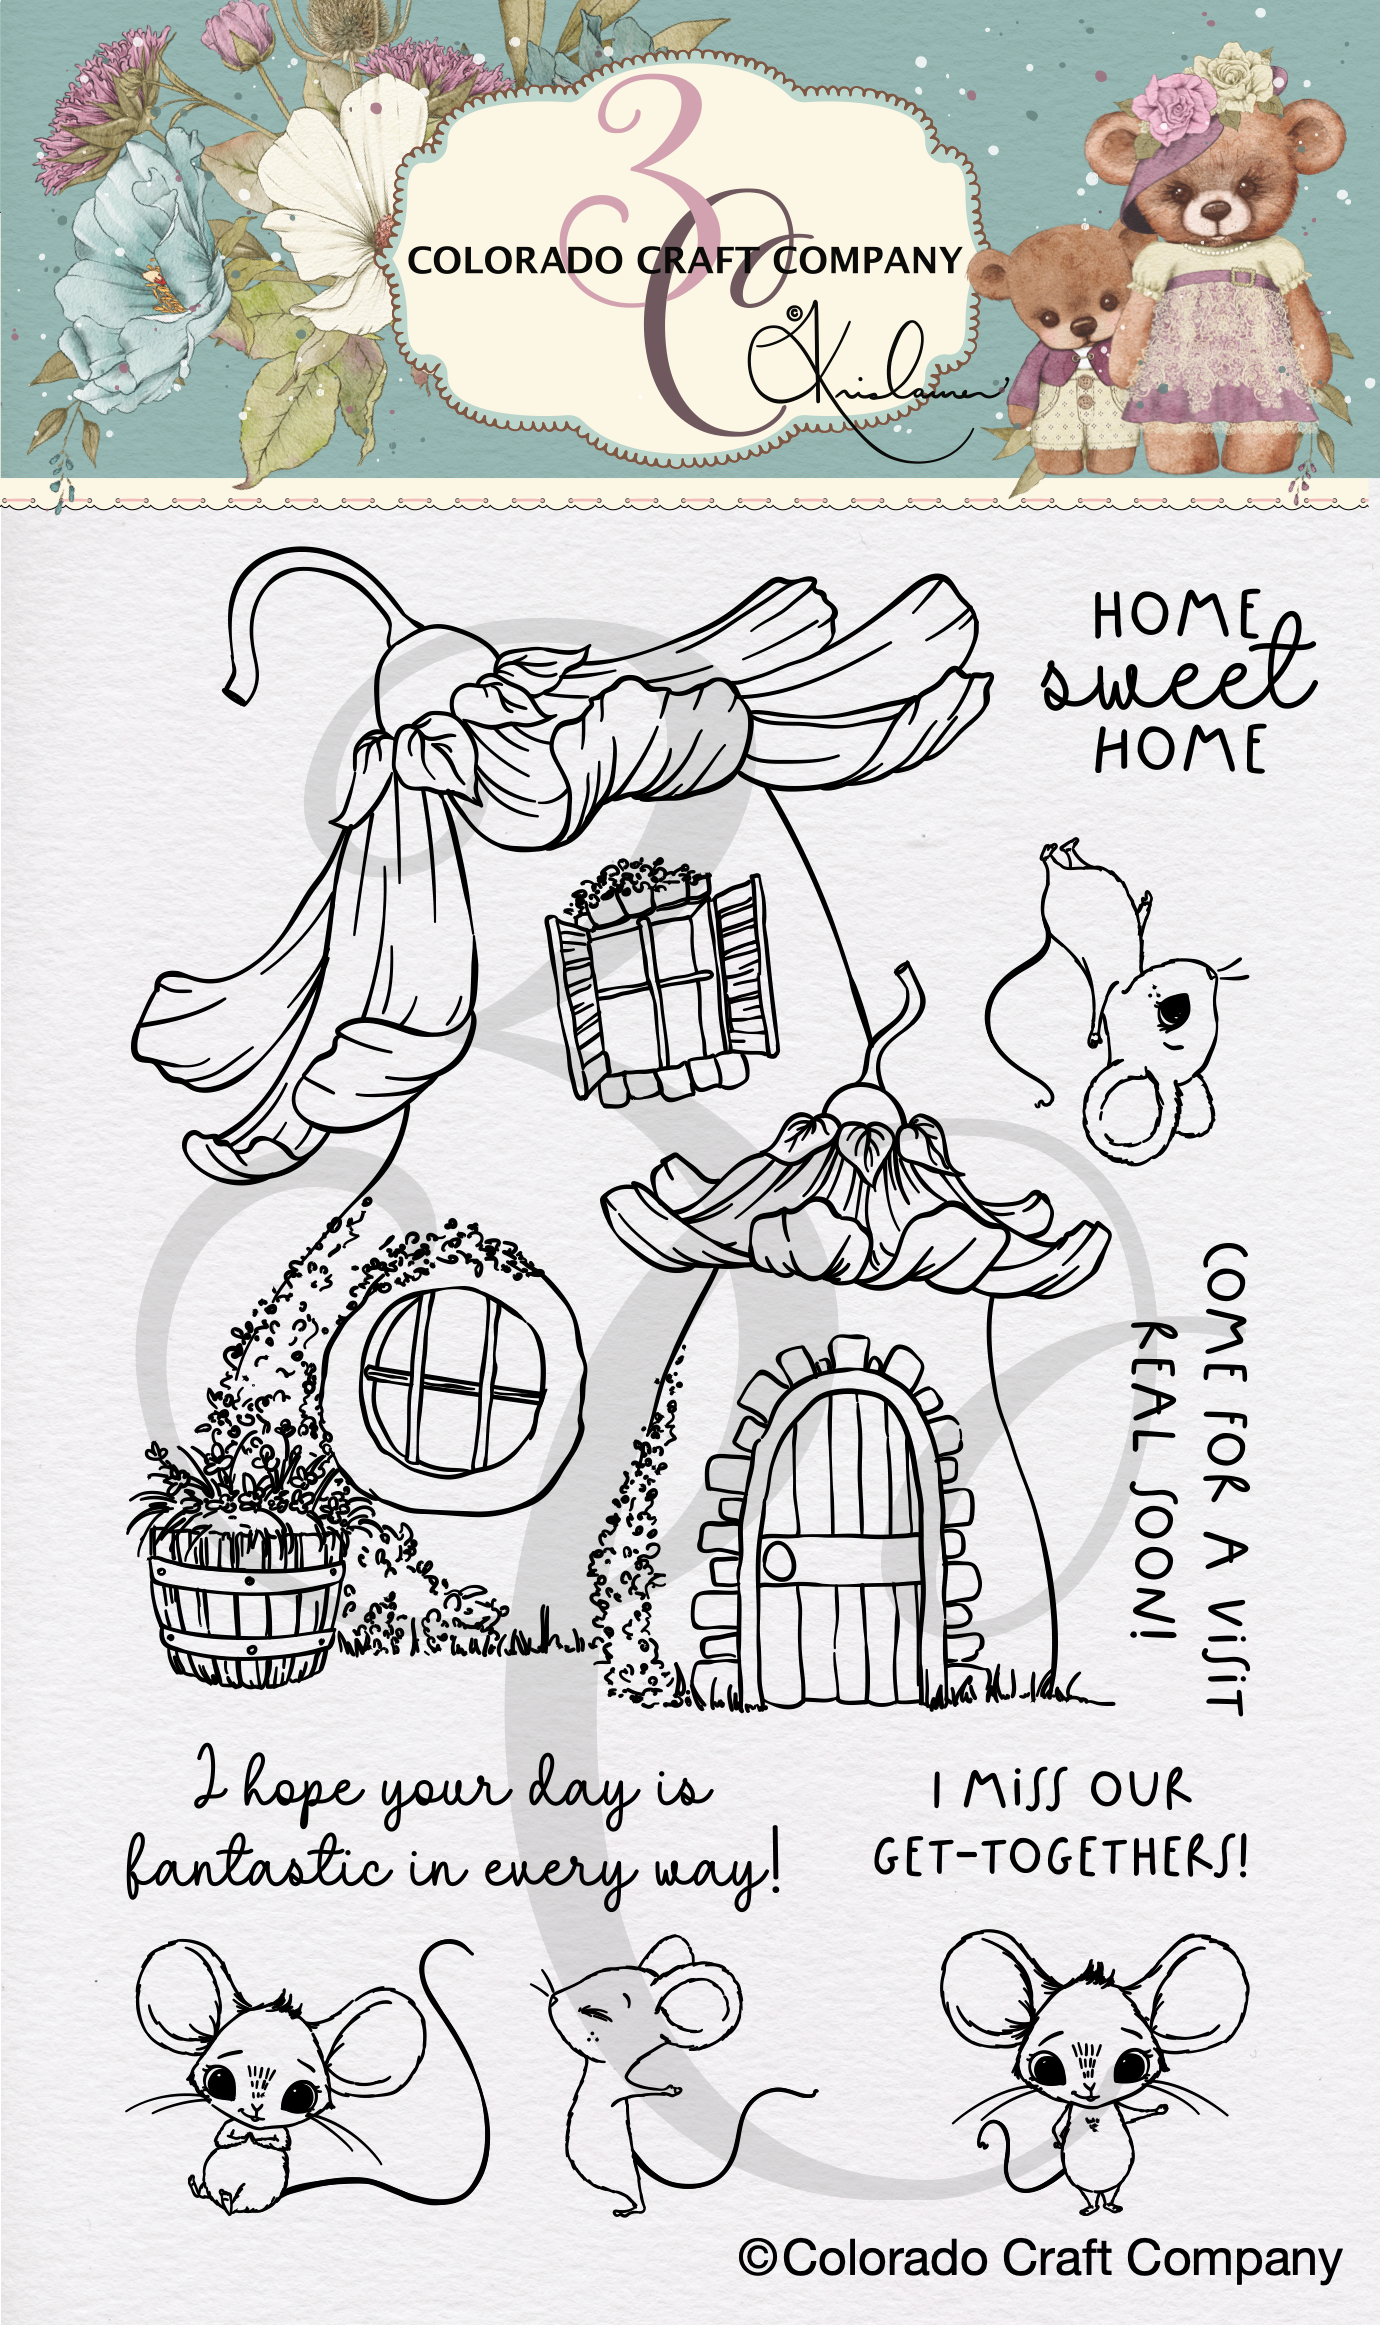 3C
COLORADO CRAFT COMPANY
©Krislauren
HOME
sweet
HOME
COME FOR A VISIT
REAL SOON!
I hope your day is
fantastic in every way!
I MISS OUR
GET-TOGETHERS!
©Colorado Craft Company